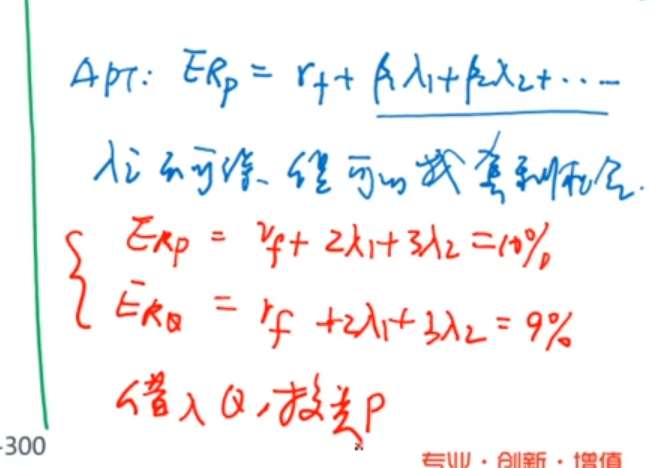 APT: ERp = rf + β1λ1+β2λ2+·····
λi 不可得、但可以找套利机会.
ERP = rf + 2λ1+3λ2 =10%
ERQ = rf +2λ1+3λ2 = 9%
借入Q,投资P
-300
专业·创新·增值